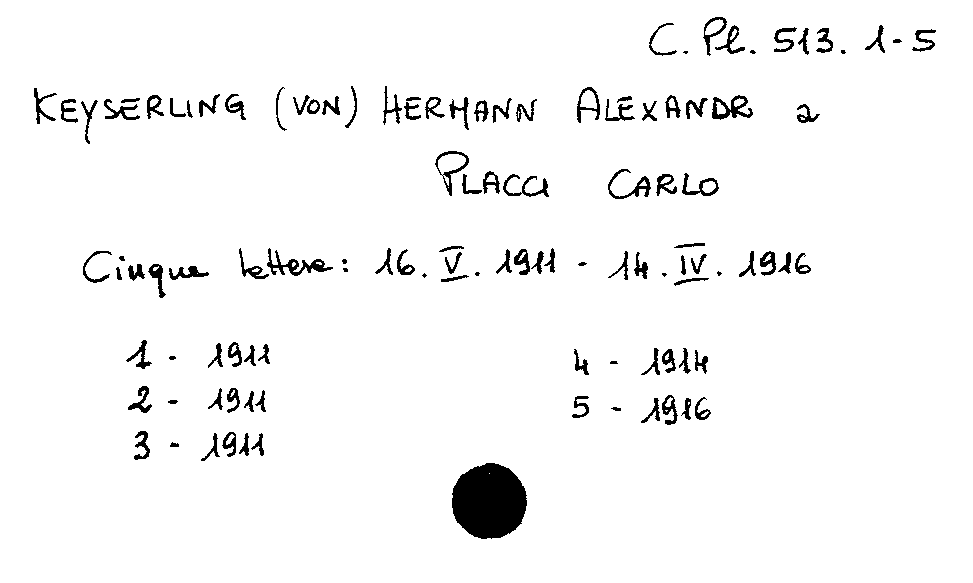 C. Pl. 513. 1-5
KEYSERLING (VON) HERMANN ALEXANDR a
PLACCI CARLO
Cinque lettere: 16. V. 1911 - 14. IV. 1916
1 - 1911
2 - 1911
3 - 1911
4 - 1914
5 - 1916